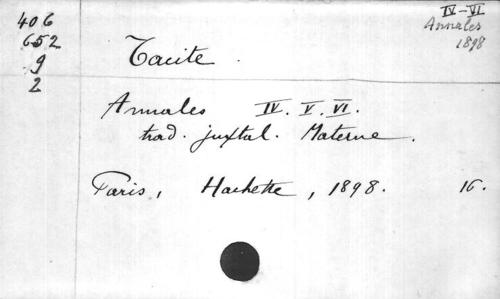 406
652
9
2
IV-VI
Annales
1898
Tacite.
Annales IV. V. VI.
trad. juxtal. Materne.
Paris, Hachette, 1898. 16.